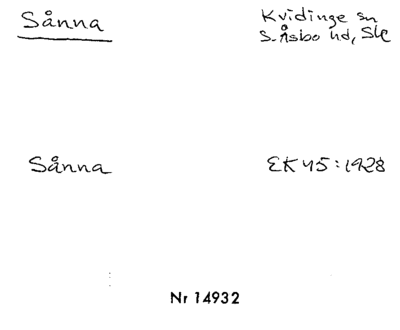 Sånna
Kvidinge sn
S. Åsbo hd, Sk
Sånna
EK 45:1928
Nr 14932